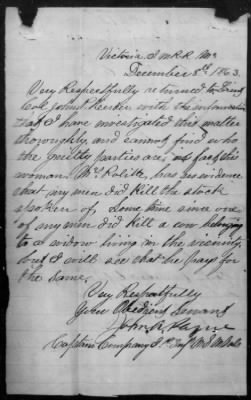 Victoria I M R R Mo
December 8th 1863.
Very Respectfully returned to Lieut
Col John P. with the information
that I have investigated this matter
thoroughly and cannot find who
the guilty parties are, as far as this
woman Mrs has no evidence
that my men did kill the stock
spoken of, Some time since one
of my men did kill a cow belonging
to a widow living in the vicinity
but I will see that he pays for
the same.
Very Respectfully
Your Obedient Servant
John R. Payne
Captain Company